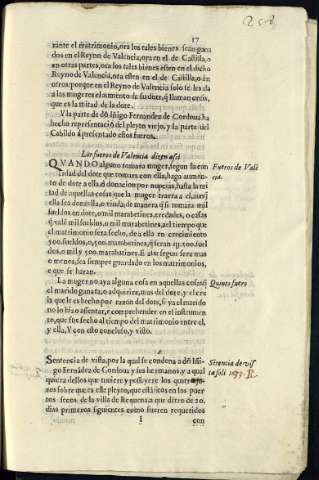 17
rante el matrimonio, ora los tales bienes sean gana
dos en el Reyno de Valencia, ora en el de Castilla, o
en otras partes, ora los tales bienes esten en el dicho
Reyno de Valencia, ora esten en el de Castilla, o en
otros porque en el Reyno de Valencia solo se les da
a las mugeres el aumento de su dote, q̃ llaman creix,
que es la mitad de la dote.
Y la parte de dõ Iñigo Fernandez de Cordoua ha
hecho representaciõ del pleyto viejo, y la parte del
Cabildo a presentado estos fueros.
Los fueros de Valencia dizen assi
QVANDO alguno tomara muger, segun la can
tidad del dote que tomara con ella, haga aumen
to de dote a ella, ô donacion por nupcias, hasta la mi
tad de aquellas cosas que la muger traera a el, si
ella sea donzella, o viuda, de manera q̃ si tomara mil
sueldos en dote, o mil marabetines, heredades, o casas
q̃ valẽ mil sueldos, o mil marabetines, al tiempo que
el matrimonio sera fecho, de a ella en crecimiento
500. sueldos, o, 500. marabetines, q̃ seran 1500. suel
dos, o mil y 500. marabetines. E assi segun sera mas
o menos, sea siempre guardado en los matrimonios,
e que se haran.
La muger no aya alguna cosa en aquellas cosas q̃
el marido ganara, o adquirira, mas del dote, y el creix
la que le es hecho por razon del dote, si ya el marido
no lo hizo assentar, e comprehender en el instrumen
to, que fue fecho al tiempo del matrimonio entre el,
y ella, Y con esto concluso, y visto.
Fueros de Valẽ
cia.
Quinto fuero
Sentencia de vista, por la qual se condena a dõ Iñi
go Fernãdez de Cordoua y sus hermanos y a qual
quiera dellos que tuuiere y posseyere los quatro
sobre que es este pleyto, que estã sitos en los puer
tos secos de la villa de Requena, a que dẽtro de 20.
dias primeros siguientes como fueren requeridos
Sẽtencia de vis
ta
I
con